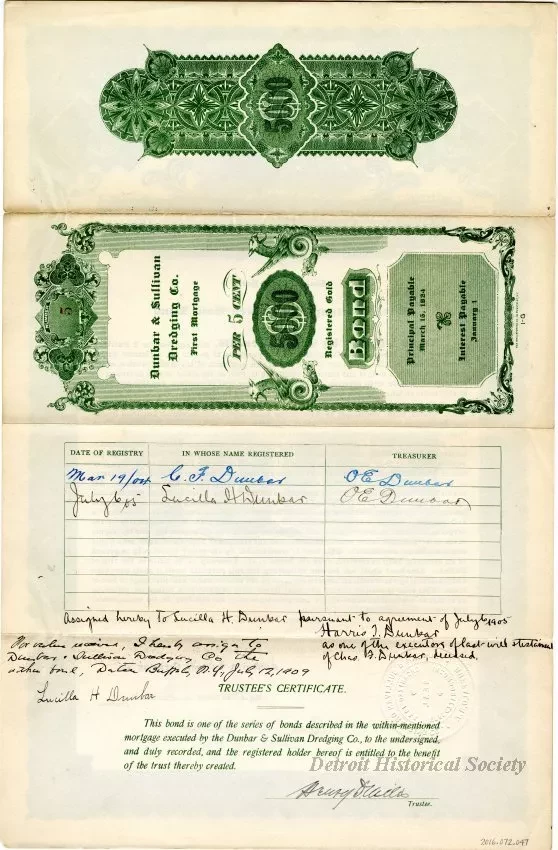 5000
5
Dunbar & Sullivan
Dredging Co.
First Mortgage
PER 5 CENT
5000
Registered Gold
Bond
Principal Payable
March 15, 1924
Interest Payable
January 1
DATE OF REGISTRY IN WHOSE NAME REGISTERED TREASURER
Mar 19/04 C. F. Dunbar OE Dunbar
July 6, 05 Lucilla H Dunbar OE Dunbar
Assigned hereby to Lucilla H. Dunbar pursuant to agreement of July 6, 1905
Harris T. Dunbar
as one of the executors of last will & testament
of Chas. F. Dunbar, deceased.
For value received, I hereby assign to
Dunbar & Sullivan Dredging Co the
within bond, Dated Buffalo, N.Y., July 12, 1909
Lucilla H Dunbar
TRUSTEE'S CERTIFICATE.
This bond is one of the series of bonds described in the within-mentioned
mortgage executed by the Dunbar & Sullivan Dredging Co., to the undersigned,
and duly recorded, and the registered holder hereof is entitled to the benefit
of the trust thereby created.
Detroit Historical Society
Trustee.
2016.072.047